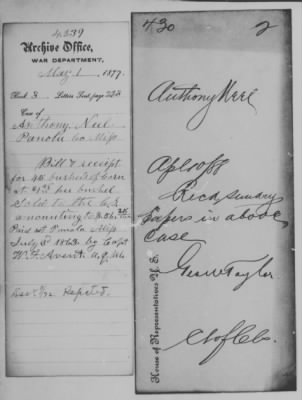 4539
Archive Office,
WAR DEPARTMENT,
May 1, 1877.
Book 3 Letters Sent, page 223
Case of
Anthony Neel
Panola Co Miss
Bill & receipt
for 45 bushels of corn
at per bushel
Sold to the C.S.
amounting to $56.25
Paid at Panola Miss
July 3 1863 by Capt
W. T. Avent A.Q.M.
Rejected.
430
2
Anthony Neel
Recd Sundry
papers in above
Case
Geo W Taylor
House of Representatives U. S.